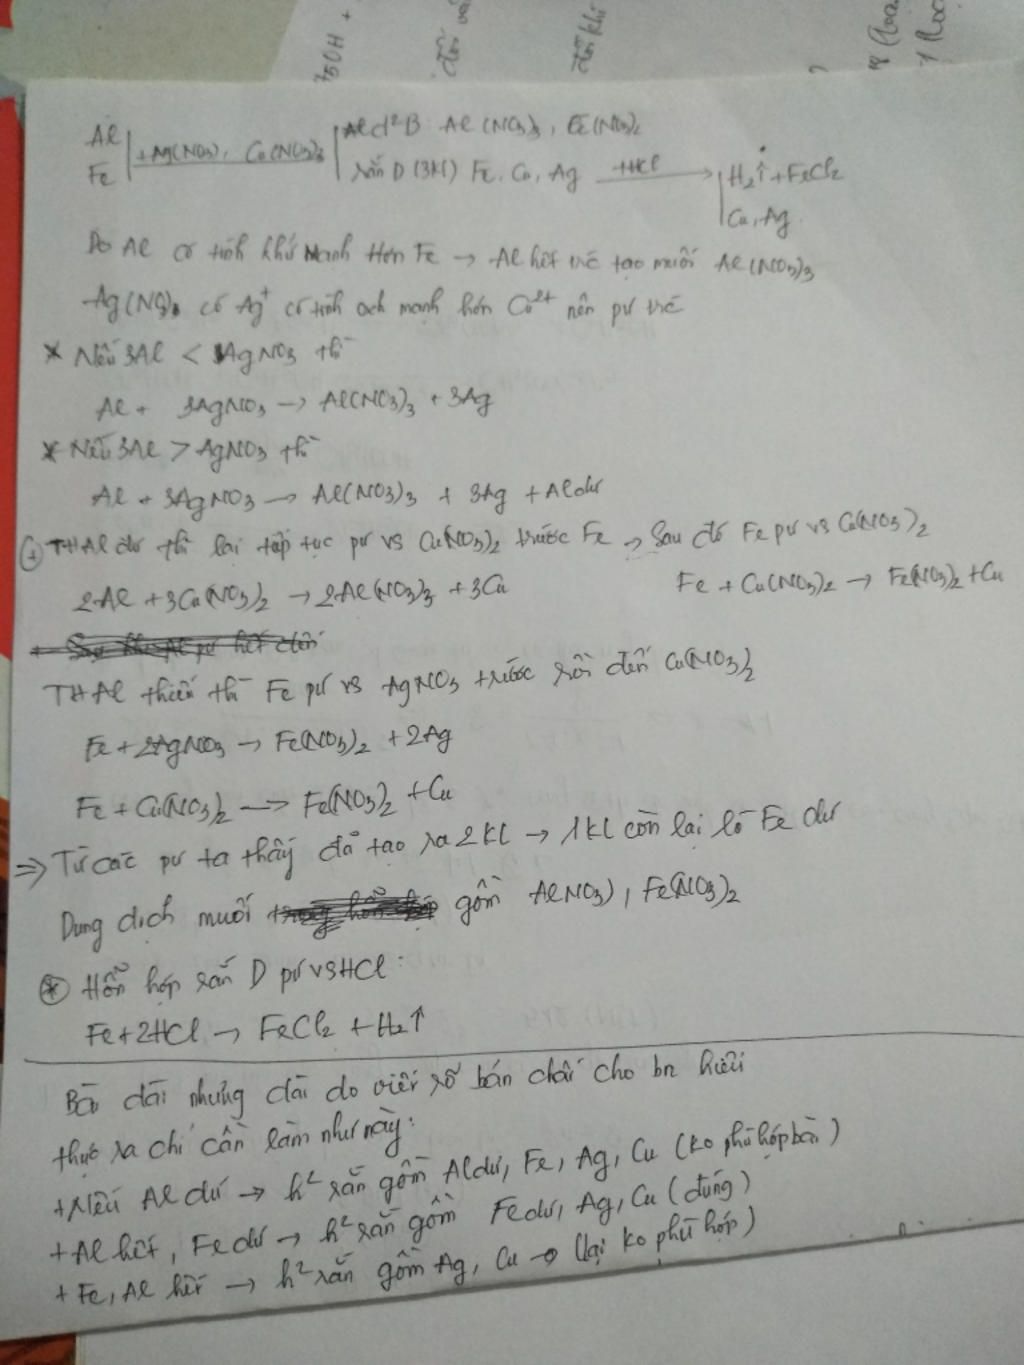 75OH +
Al | +Ag(NO3), Cu(NO3)2 | d² B: Al(NO3)3, Fe(NO3)2
Fe | rắn D (3Kl) Fe, Cu, Ag +HCl → H2↑ + FeCl2
Cu, Ag
Do Al có tính khử mạnh hơn Fe → Al hết trc tạo muối Al(NO3)3
Ag(NO3) có Ag+ có tính oxh mạnh hơn Cu2+ nên pư trc
* Nếu 3Al < AgNO3 thì
Al + 3AgNO3 → Al(NO3)3 + 3Ag
* Nếu 3Al > AgNO3 thì
Al + 3AgNO3 → Al(NO3)3 + 3Ag + Al dư
+ TH Al dư thì lại tiếp tục pư vs Cu(NO3)2 trước Fe → Sau đó Fe pư vs Cu(NO3)2
2Al + 3Cu(NO3)2 → 2Al(NO3)3 + 3Cu Fe + Cu(NO3)2 → Fe(NO3)2 + Cu
TH Al thiếu thì Fe pư vs AgNO3 trước rồi đến Cu(NO3)2
Fe + 2AgNO3 → Fe(NO3)2 + 2Ag
Fe + Cu(NO3)2 → Fe(NO3)2 + Cu
⇒ Từ các pư ta thấy đã tạo ra 2Kl → 1Kl còn lại là Fe dư
Dung dịch muối gồm AlNO3), Fe(NO3)2
* Hỗn hợp rắn D pư vs HCl:
Fe + 2HCl → FeCl2 + H2↑
Bài dài nhưng dài do viết rõ bản chất cho bn hiểu
thực ra chỉ cần làm như này:
+ Nếu Al dư → h² rắn gồm Al dư, Fe, Ag, Cu (ko phù hợp bài)
+ Al hết, Fe dư → h² rắn gồm Fe dư, Ag, Cu (đúng)
+ Fe, Al hết → h² rắn gồm Ag, Cu → (lại ko phù hợp)